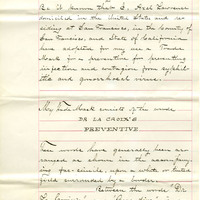 Be it known that I, Axel Lawrence
domiciled in the United States and re-
siding at San Francisco, in the County of
San Francisco, and State of California
have adopted for my use a Trade-
Mark for a preventive for preventing
infection and contagion from syphil-
itic and gonorrhoeal virus,
My Trade Mark consists of the words
DR LA CROIX'S
PREVENTIVE
These words have generally been ar-
ranged as shown in the accompany-
ing fac-simile, upon a white or tinted
field surrounded by a border.
Between the words "Dr